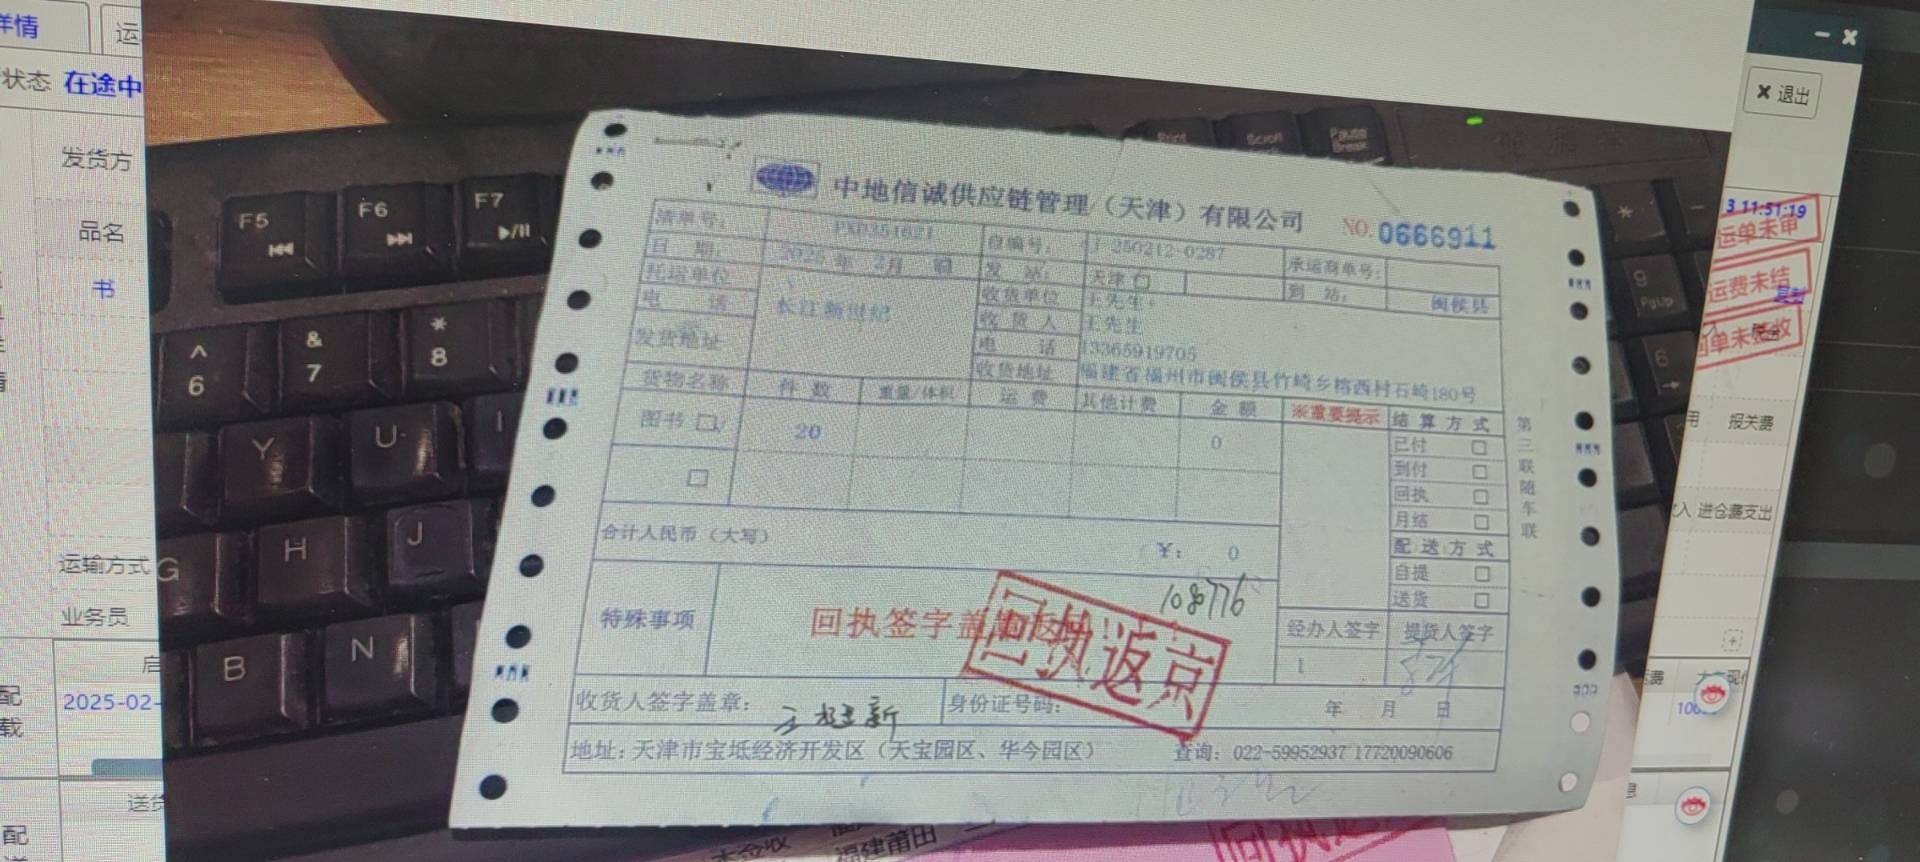 详情
状态 在途中
发货方
品名
书
运输方式
业务员
2025-02-
配
载
F5
F6
F7
^
6
&
7
*
8
Y
U
I
G
H
J
B
N
Scroll
Pause
Break
9
PgUp
6
退出
3 11:51:19
运单未审
运费未结
报关费
进仓费支出
中地信诚供应链管理（天津）有限公司
NO. 0666911
清单号：
自编号： 250212-0287
承运商单号：
日 期： 2025 年 2月
发 站： 天津
到 站： 闽侯县
托运单位 长江新世纪
收货单位 王先生
电 话
收 货 人 王先生
发货地址
电 话 13365919705
收货地址 福建省福州市闽侯县竹崎乡榕西村石崎180号
货物名称 件 数 重量/体积 运 费 其他计费 金 额 ※重要提示 结 算 方 式
图书 20 0
已付 □
到付 □
回执 □
月结 □
配 送 方 式
自提 □
送货 □
第三联随车联
合计人民币（大写） ¥： 0
特殊事项
108776
回执返京
经办人签字 提货人签字
1
收货人签字盖章：
身份证号码：
年 月 日
地址：天津市宝坻经济开发区（天宝园区、华今园区） 查询：022-59952937 17720090606
福建莆田